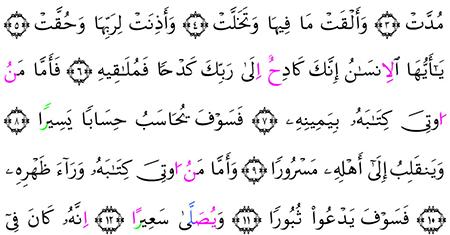 مُدَّتْ ﴿٣﴾ وَأَلْقَتْ مَا فِيهَا وَتَخَلَّتْ ﴿٤﴾ وَأَذِنَتْ لِرَبِّهَا وَحُقَّتْ ﴿٥﴾
يَٰٓأَيُّهَا اَ۬لِانسَٰنُ إِنَّكَ كَادِحٌ اِلَىٰ رَبِّكَ كَدْحًا فَمُلَٰقِيهِ ﴿٦﴾ فَأَمَّا مَنُ
ا۟وتِىَ كِتَٰبَهُۥ بِيَمِينِهِۦ ﴿٧﴾ فَسَوْفَ يُحَاسَبُ حِسَابًا يَسِيرًا ﴿٨﴾
وَيَنقَلِبُ إِلَىٰٓ أَهْلِهِۦ مَسْرُورًا ﴿٩﴾ وَأَمَّا مَنُ ا۟وتِىَ كِتَٰبَهُۥ وَرَآءَ ظَهْرِهِۦ
﴿١٠﴾ فَسَوْفَ يَدْعُوا۟ ثُبُورًا ﴿١١﴾ وَيُصَلَّىٰ سَعِيرًا ﴿١٢﴾ اِنَّهُۥ كَانَ فِىٓ